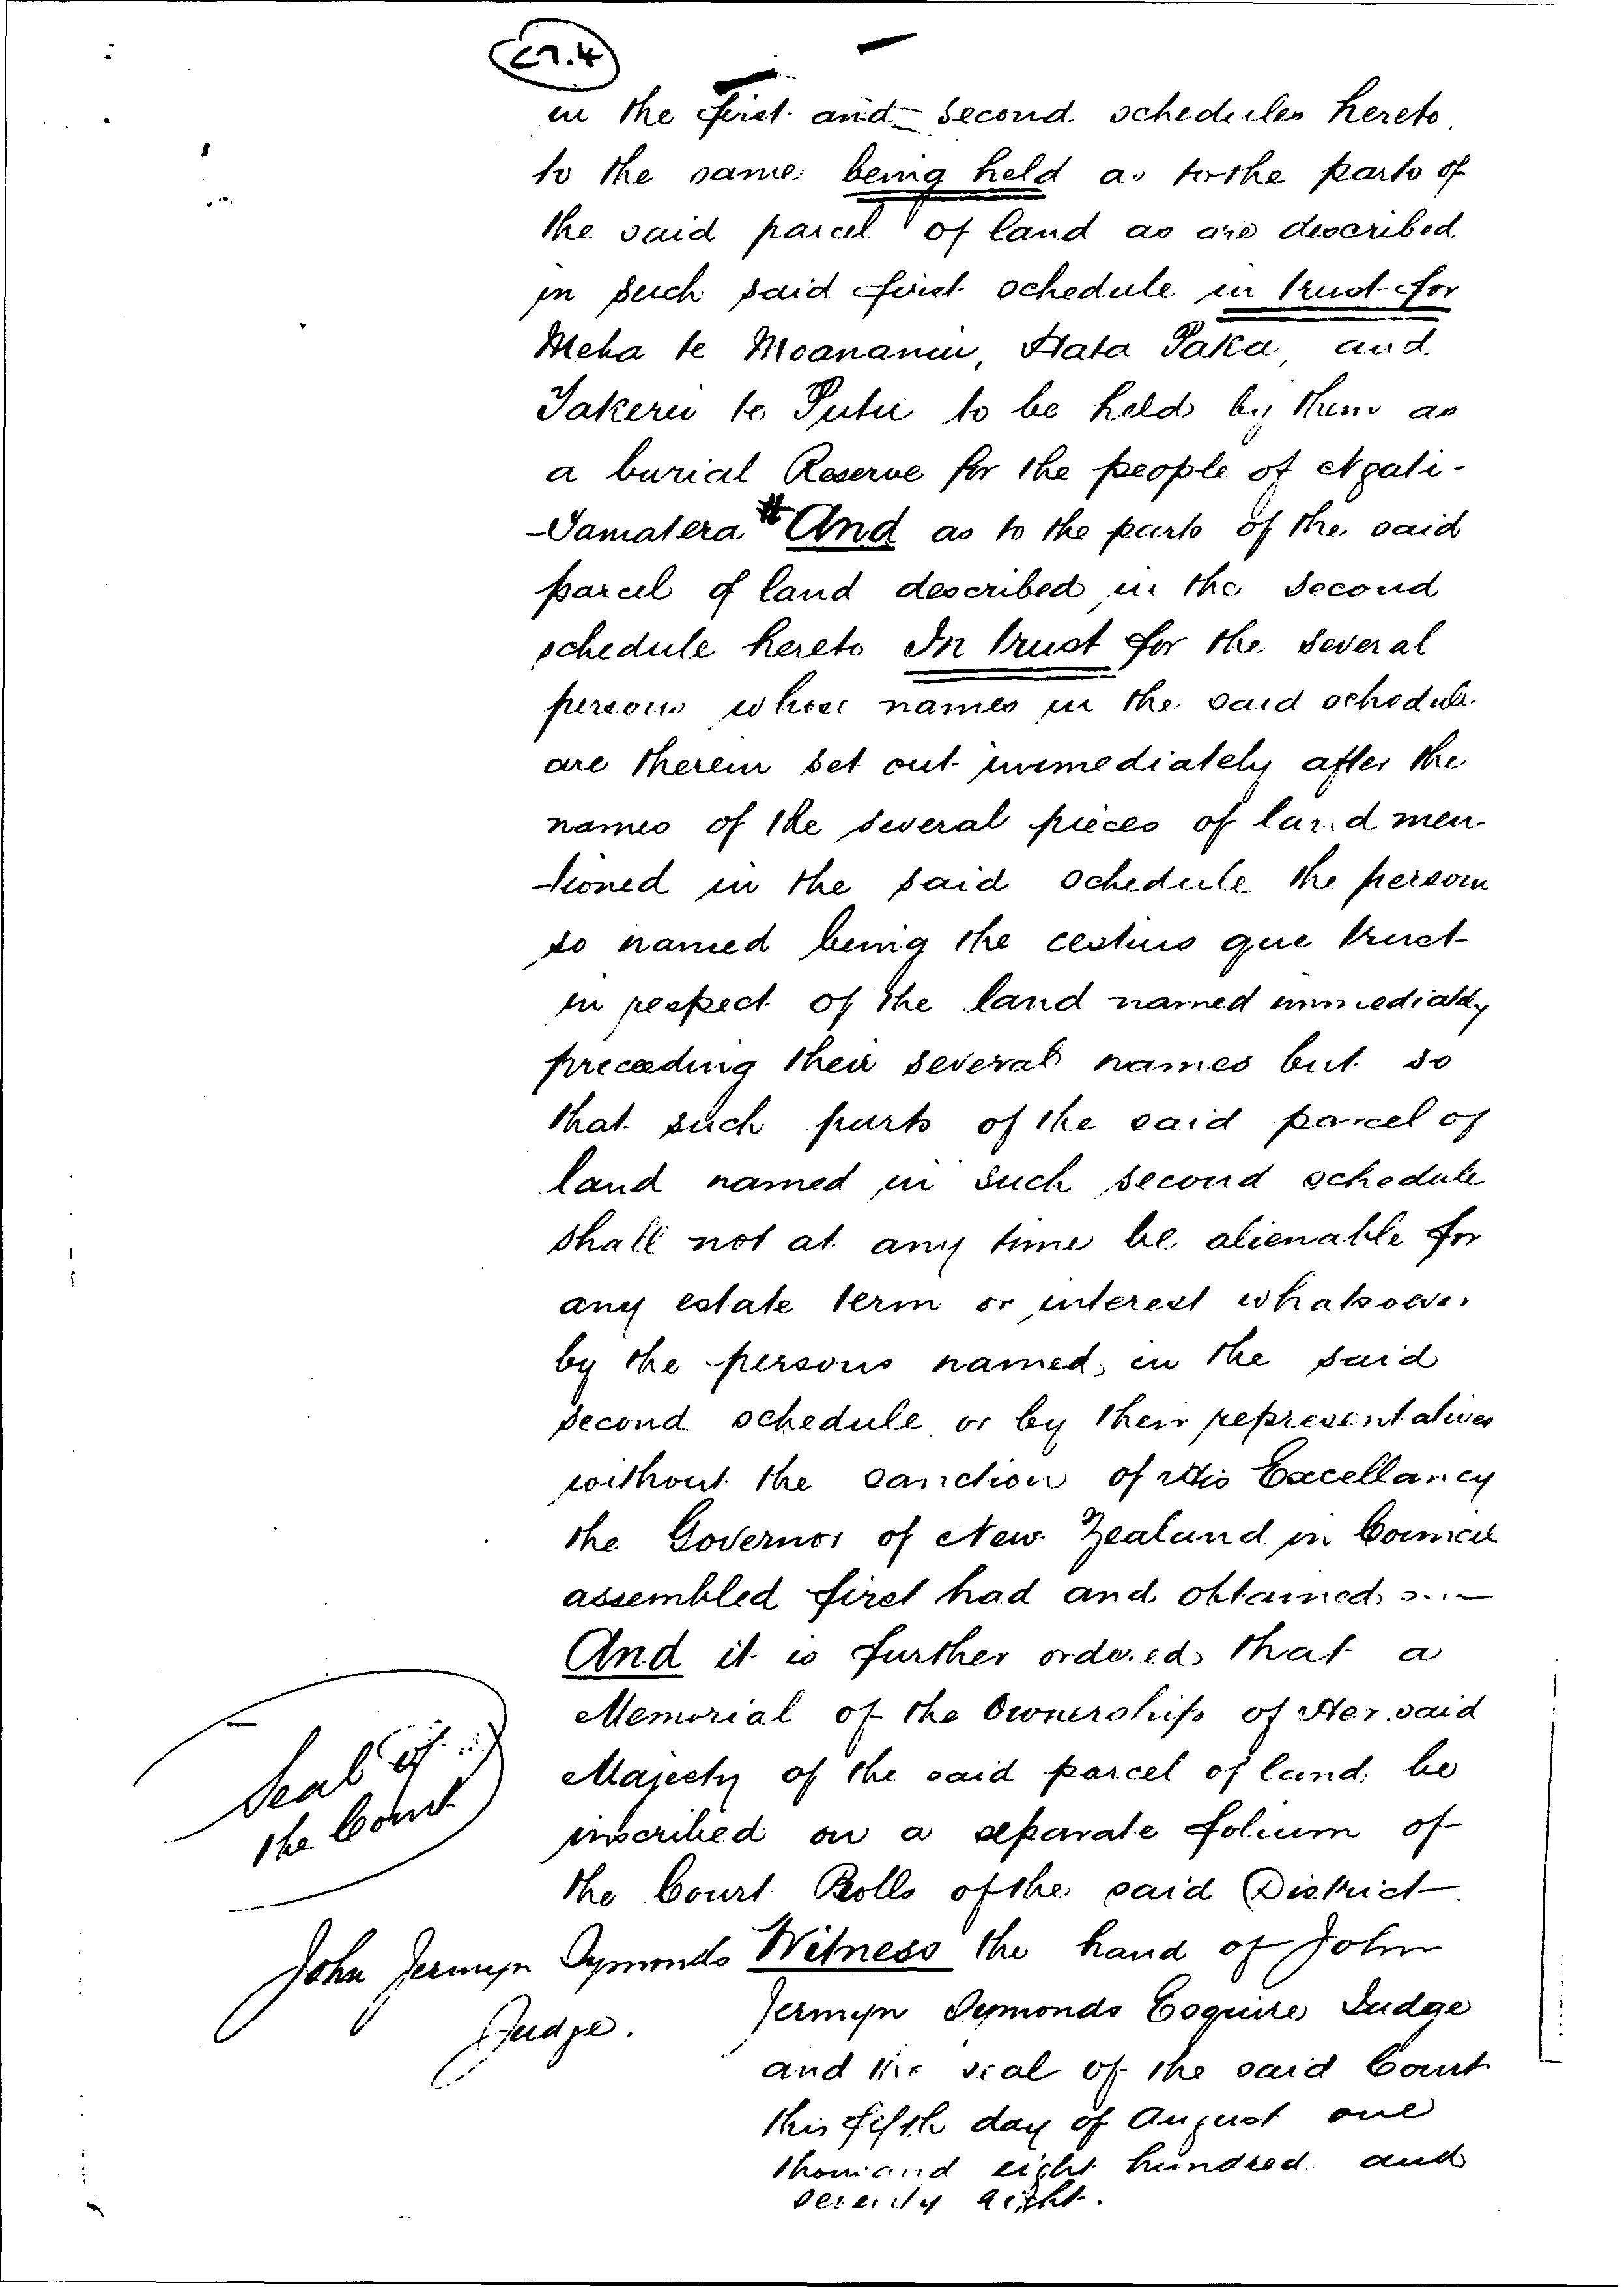 27.4
in the first and second schedules hereto
to the same being held as to the parts of
the said parcel of land as are described
in such said first schedule in trust for
Meha te Moananui, Hata Paka, and
Takerei te Putu to be held by them as
a burial Reserve for the people of Ngati-
-Tamatera # And as to the parts of the said
parcel of land described in the second
schedule hereto In trust for the several
persons whose names in the said schedule
are therein set out immediately after the
names of the several pieces of land men-
-tioned in the said schedule the persons
so named being the cestuis que trust
in respect of the land named immediately
preceeding their several names but so
that such parts of the said parcel of
land named in such second schedule
shall not at any time be alienable for
any estate term or interest whatsoever
by the persons named, in the said
second schedule or by their representatives
without the sanction of His Excellancy
the Governor of New Zealand in Council
assembled first had and obtained
And it is further ordered that a
Memorial of the Ownership of Her said
Majesty of the said parcel of land be
inscribed on a separate folium of
the Court Rolls of the said District
Seal of
the Court
John Jermyn Symonds
Judge.
Witness the hand of John
Jermyn Symonds Esquire Judge
and the seal of the said Court
this fifth day of August one
thousand eight hundred and
seventy eight.